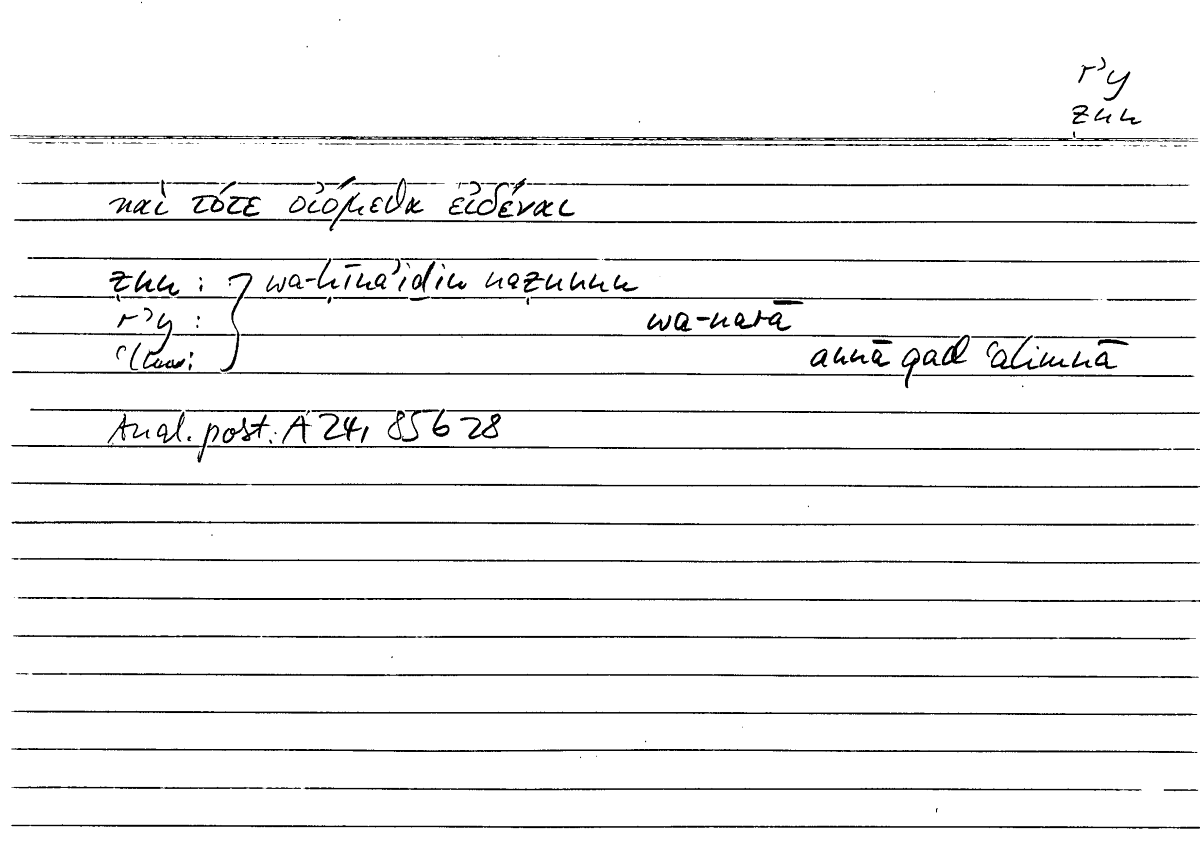 rʾy
ẓnn
καὶ τότε οἰόμεθα εἰδέναι
ẓnn : } wa-ḥīnaʾiḏin naẓunnu
rʾy : wa-narā
ʿlm: annā qad ʿalimnā
Anal. post. A 24, 85b28